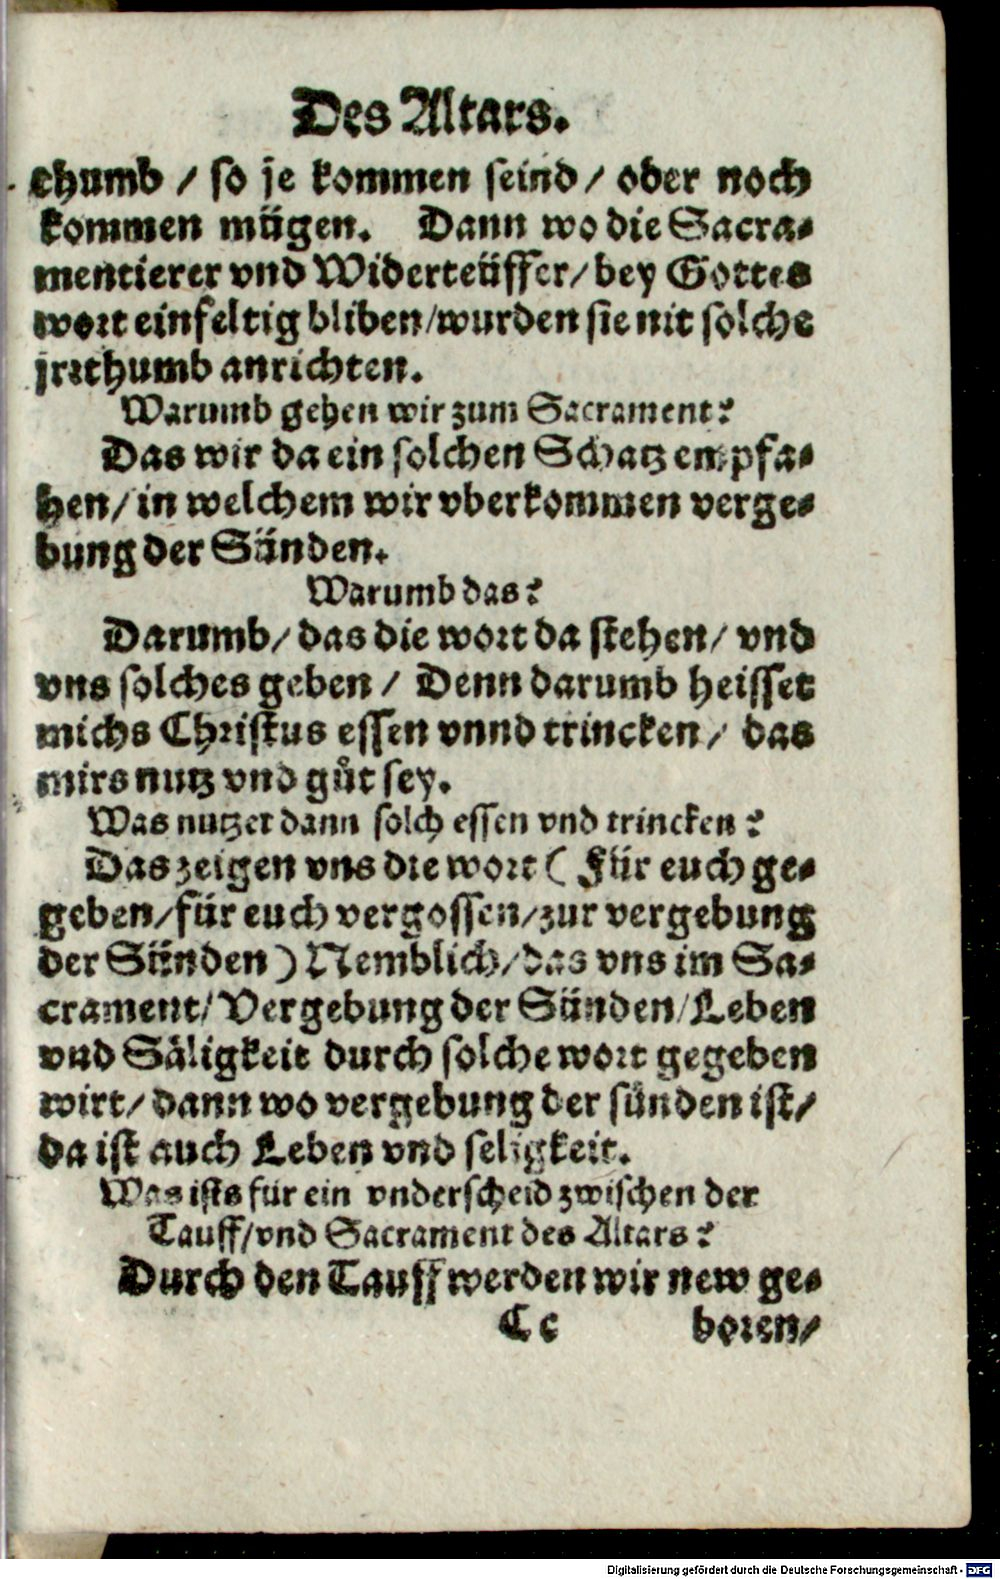 Des Altars.
thumb / so je kommen seind / oder noch
kommen mügen. Dann wo die Sacra-
mentierer vnd Widerteüffer / bey Gottes
wort einfeltig bliben / wurden sie nit solche
jrrthumb anrichten.
Warumb gehen wir zum Sacrament?
Das wir da ein solchen Schatz empfa-
hen / in welchem wir vberkommen verge-
bung der Sünden.
Warumb das?
Darumb / das die wort da stehen / vnd
vns solches geben / Denn darumb heisset
michs Christus essen vnnd trincken / das
mirs nutz vnd gůt sey.
Was nutzet dann solch essen vnd trincken?
Das zeigen vns die wort ( Für euch ge-
geben / für euch vergossen / zur vergebung
der Sünden ) Nemblich / das vns im Sa-
crament / Vergebung der Sünden / Leben
vnd Säligkeit durch solche wort gegeben
wirt / dann wo vergebung der sünden ist /
da ist auch Leben vnd seligkeit.
Was ists für ein vnderscheid zwischen der
Tauff / vnd Sacrament des Altars?
Durch den Tauff werden wir new ge-
Cc boren /
Digitalisierung gefördert durch die Deutsche Forschungsgemeinschaft - DFG